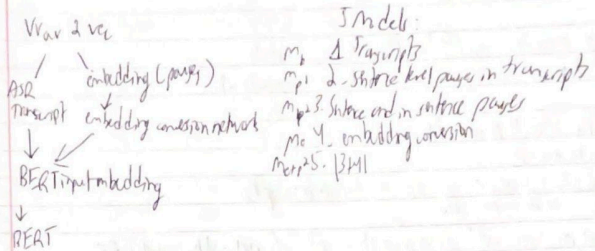 Wav 2 vec
ASR
Transcript
embedding (pauses)
embedding conversion network
BERT input embedding
BERT
5 Models:
1 Transcripts
2 - sentence level pauses in transcripts
3 Sentence and in sentence pauses
4. embedding conversion
5.